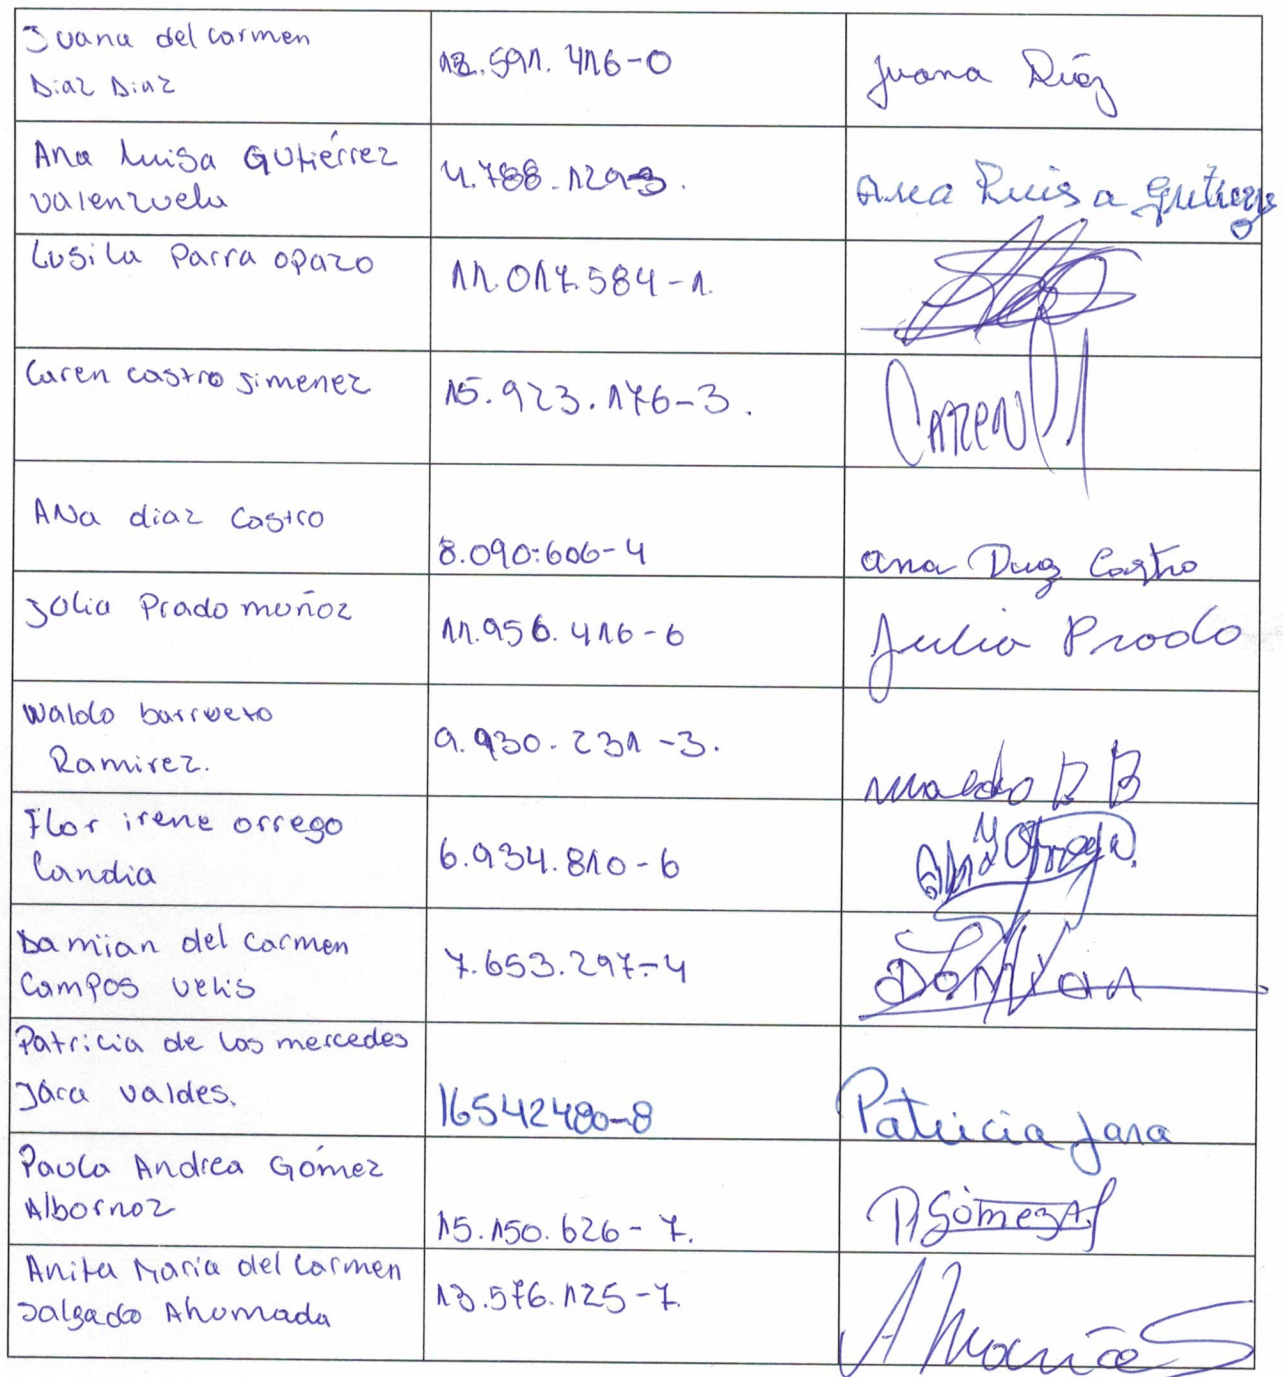 Juana del carmen
Diaz Diaz
12.591.416-0
Juana Diáz
Ana Luisa Gutiérrez
valenzuela
4.788.129-3.
Ana Luis a Gutierrez
Lusila Parra opazo
11.017.584-1.
Caren castro jimenez
15.923.176-3.
Caren
ANa diaz Castro
8.090.606-4
ana Diaz Castro
Julia Prado muñoz
11.956.416-6
Julia Prado
Waldo barrueto
Ramirez.
9.930.231-3.
Waldo R B
Flor irene orrego
Candia
6.934.810-6
Damian del Carmen
Campos velis
7.653.297-4
Damian
Patricia de las mercedes
Jara valdes.
16542480-8
Patricia Jara
Paola Andrea Gómez
Albornoz
15.150.626-7.
P. Gómez A.
Anita Maria del Carmen
Salgado Ahumada
13.576.125-7.
A Maria S